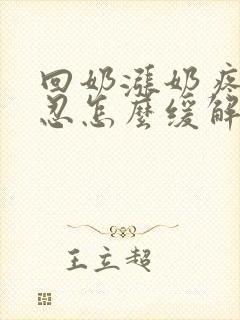 回奶漲奶疼
忍怎麼緩解
王立超